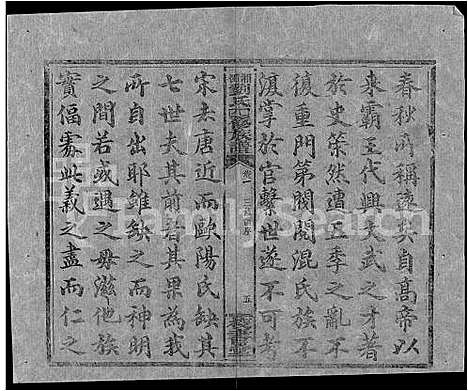 春秋所稱遠矣自高帝以
來霸王代興文武之才著
於史策然遭五季之亂不
復重門第閥閱混氏族
淆掌於官繫世遂不可考
湘鄉劉氏四修族譜
卷一
三修新序
五
宋去唐近而歐陽氏缺其
七世夫其前者其果為我
所自出耶雖缺之而神明
之間若或遇之毋滋他族
實偪處此義之盡而仁之
FamilySearch